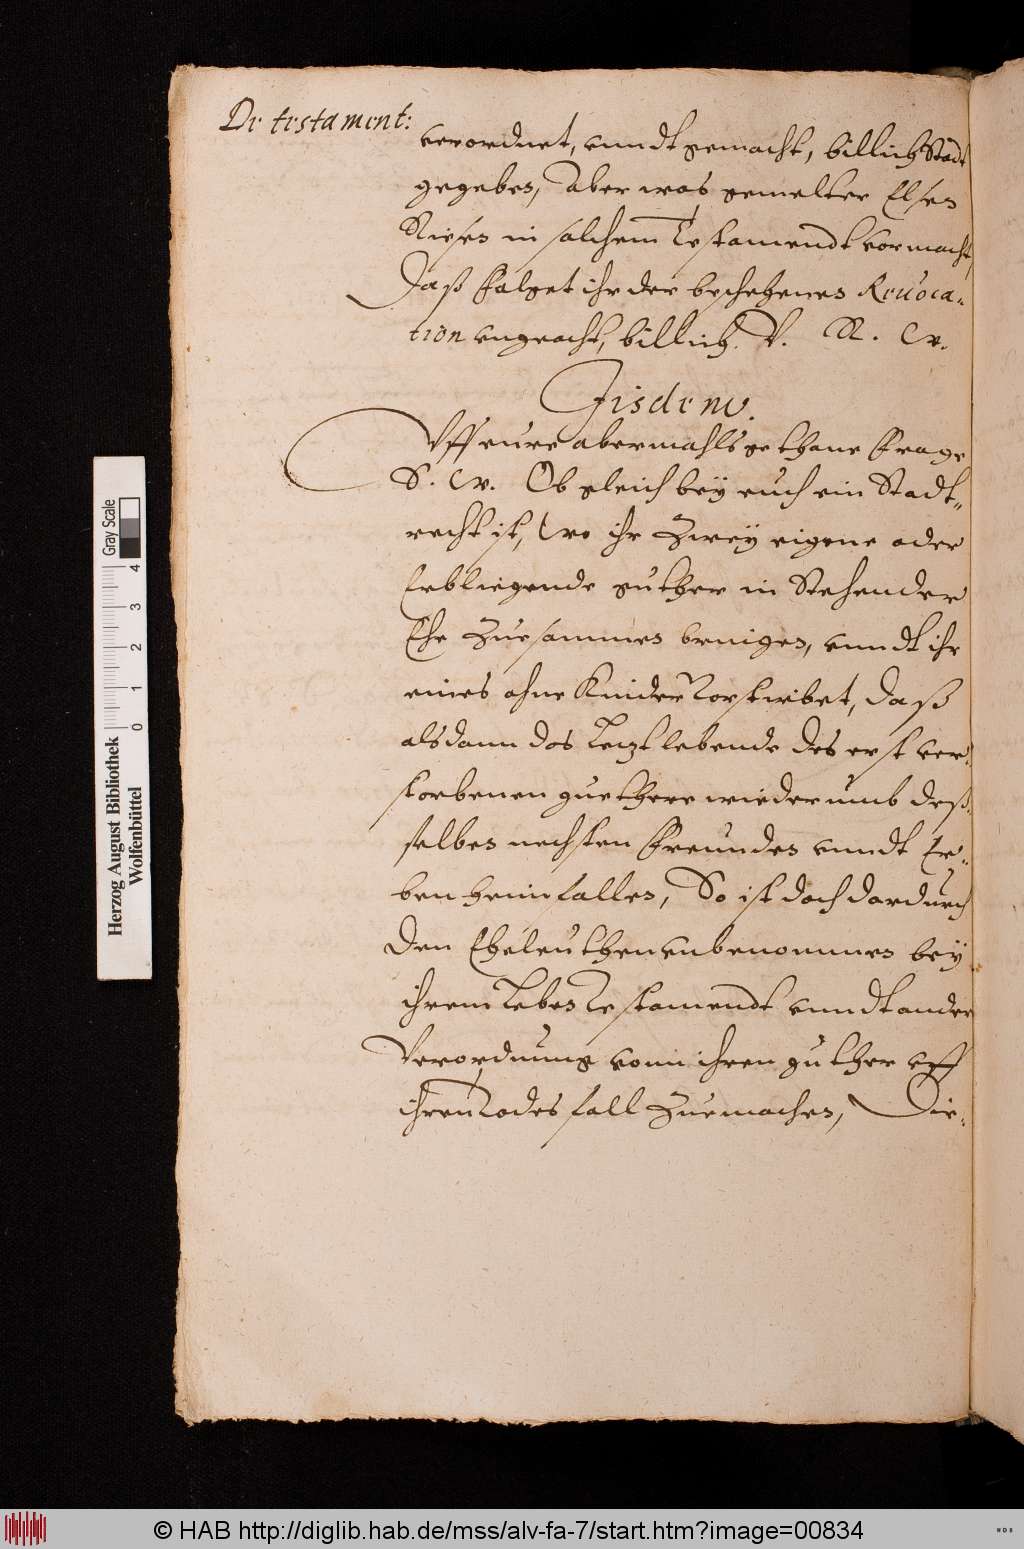 De testament:
verordnet, unndt gemacht, billich Stadt
gegeben, Aber was gemelter Elsen
in solchem Testamendt vormacht,
Daß folget ihr der beschehenen Reuoca-
tion ungeacht, billich. V. R. W.
Eisdem.
Uff eure abermahls gethane Frage
S. W. Ob gleich bey euch ein Stadt-
recht ist, Wo ihr Zwey eigene oder
Erbliegende guther in Stehender
Ehe Zuesammen bringen, unndt ihr
eines ohne Kinder Vorstirbet, daß
alsdann das Letzt lebende des erst ver-
storbenen guethere wiederumb deß-
selben nechsten Freunden unndt Er-
ben heimfallen, So ist doch dardurch
Den Eheleuthen unbenommen bey
ihrem Leben Testamendt unndt ander
Verordnung vonn ihren guther uff
ihren Todes fall Zuemachen, Die-
Gray Scale
0 1 2 3 4
Herzog August Bibliothek
Wolfenbüttel
© HAB http://diglib.hab.de/mss/alv-fa-7/start.htm?image=00834